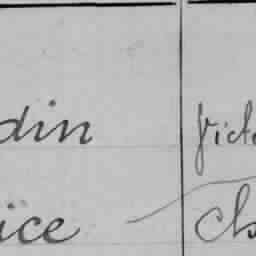 din Vict
ice Ch